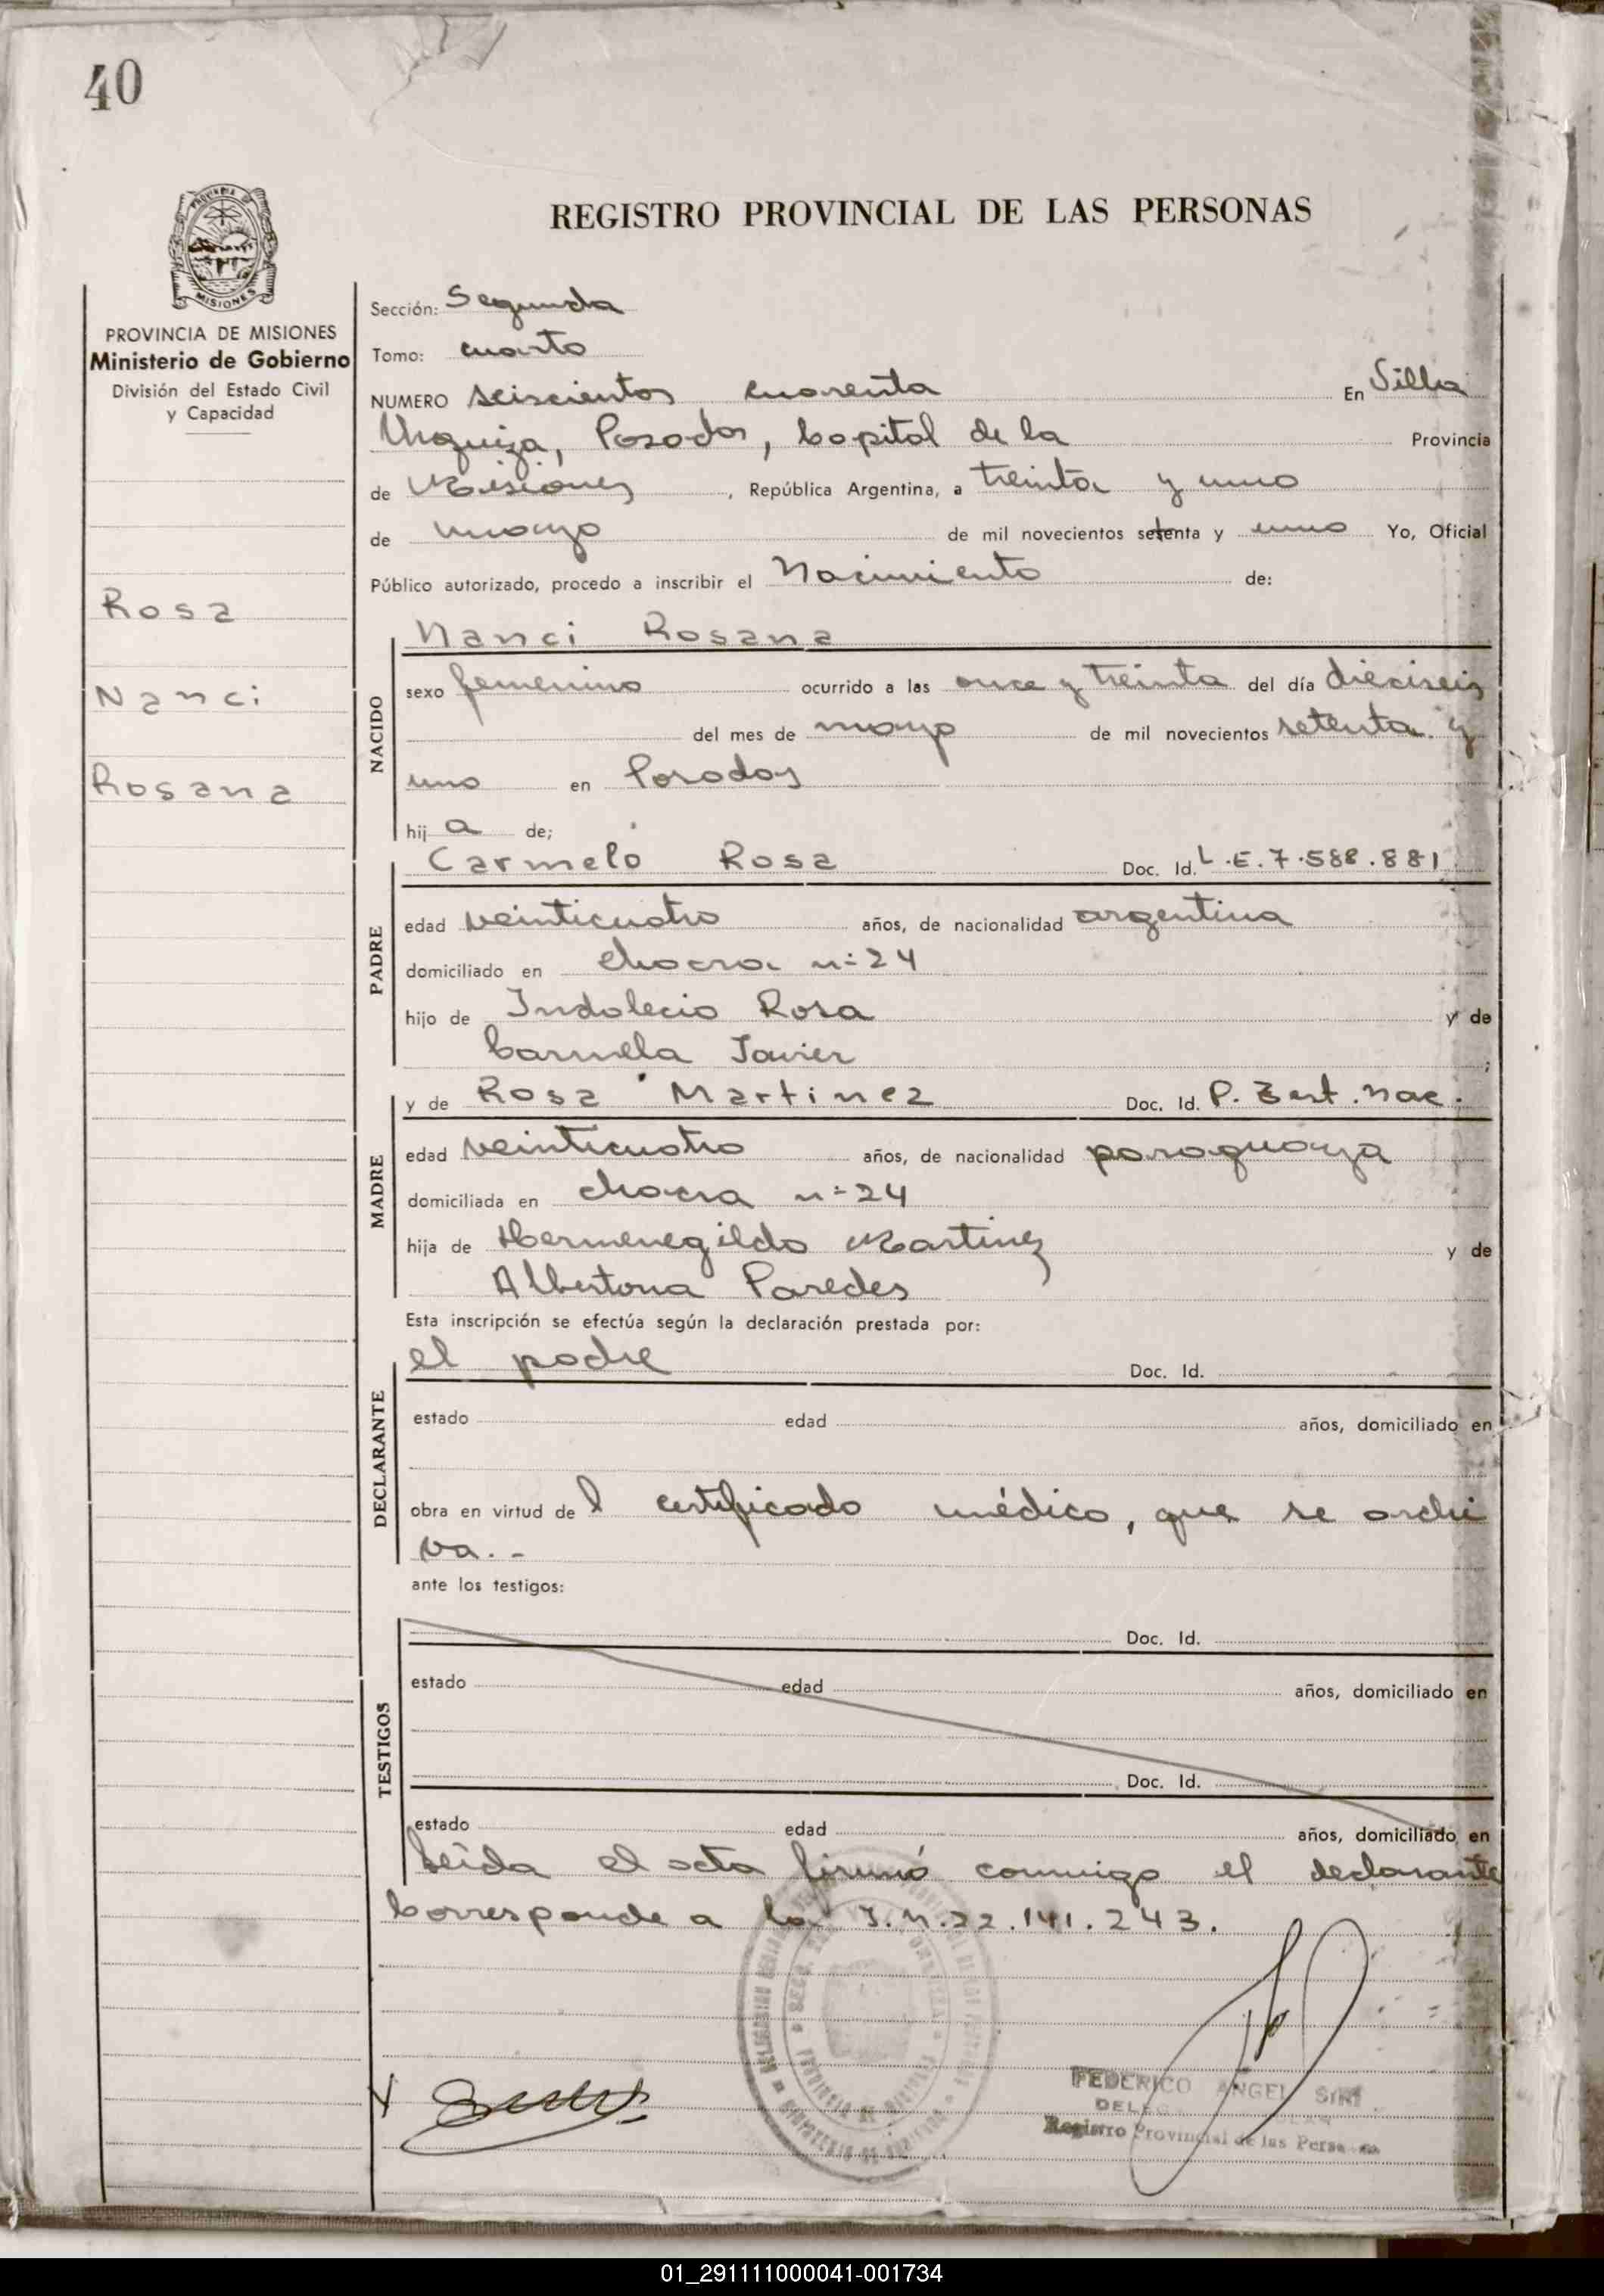 40
PROVINCIA DE MISIONES
Ministerio de Gobierno
División del Estado Civil
y Capacidad
Rosa
Nanci
Rosana
REGISTRO PROVINCIAL DE LAS PERSONAS
Sección: Segunda
Tomo: cuarto
NUMERO seiscientos cuarenta En Villa
Urquiza, Posadas, Capital de la Provincia
de Misiones, República Argentina, a treinta y uno
de mayo de mil novecientos setenta y uno Yo, Oficial
Público autorizado, procedo a inscribir el Nacimiento de:
NACIDO
Nanci Rosana
sexo femenino ocurrido a las once y treinta del día dieciseis
del mes de mayo de mil novecientos setenta y
uno en Posadas
hij a de;
PADRE
Carmelo Rosa Doc. Id. L.E.7.588.881
edad veinticuatro años, de nacionalidad argentina
domiciliado en chacra n=24
hijo de Indalecio Rosa y de
Carmela Javier ;
MADRE
y de Rosa Martinez Doc. Id. P. Cert. Nac.
edad veinticuatro años, de nacionalidad paraguaya
domiciliada en chacra n=24
hija de Hermenegildo Martinez y de
Albertona Paredes
Esta inscripción se efectúa según la declaración prestada por:
DECLARANTE
el padre Doc. Id.
estado edad años, domiciliado en
obra en virtud de l certificado médico, que se archi
va.-
ante los testigos:
TESTIGOS
Doc. Id.
estado edad años, domiciliado en
Doc. Id.
estado edad años, domiciliado en
Leida el acta firmó conmigo el declarante
Corresponde a la I.N.22.141.243.
FEDERICO ANGEL SIRI
Registro Provincial de las Personas
01_291111000041-001734